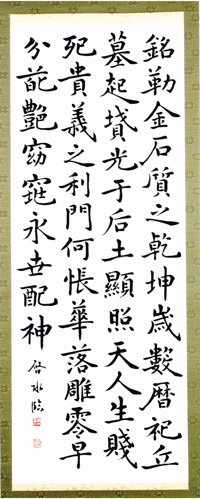 銘勒金石質之乾坤歲數曆祀丘
墓起墳光于后土顯照天人生賤
死貴義之利門何悵華落雕零早
分葩艷窈窕永世配神